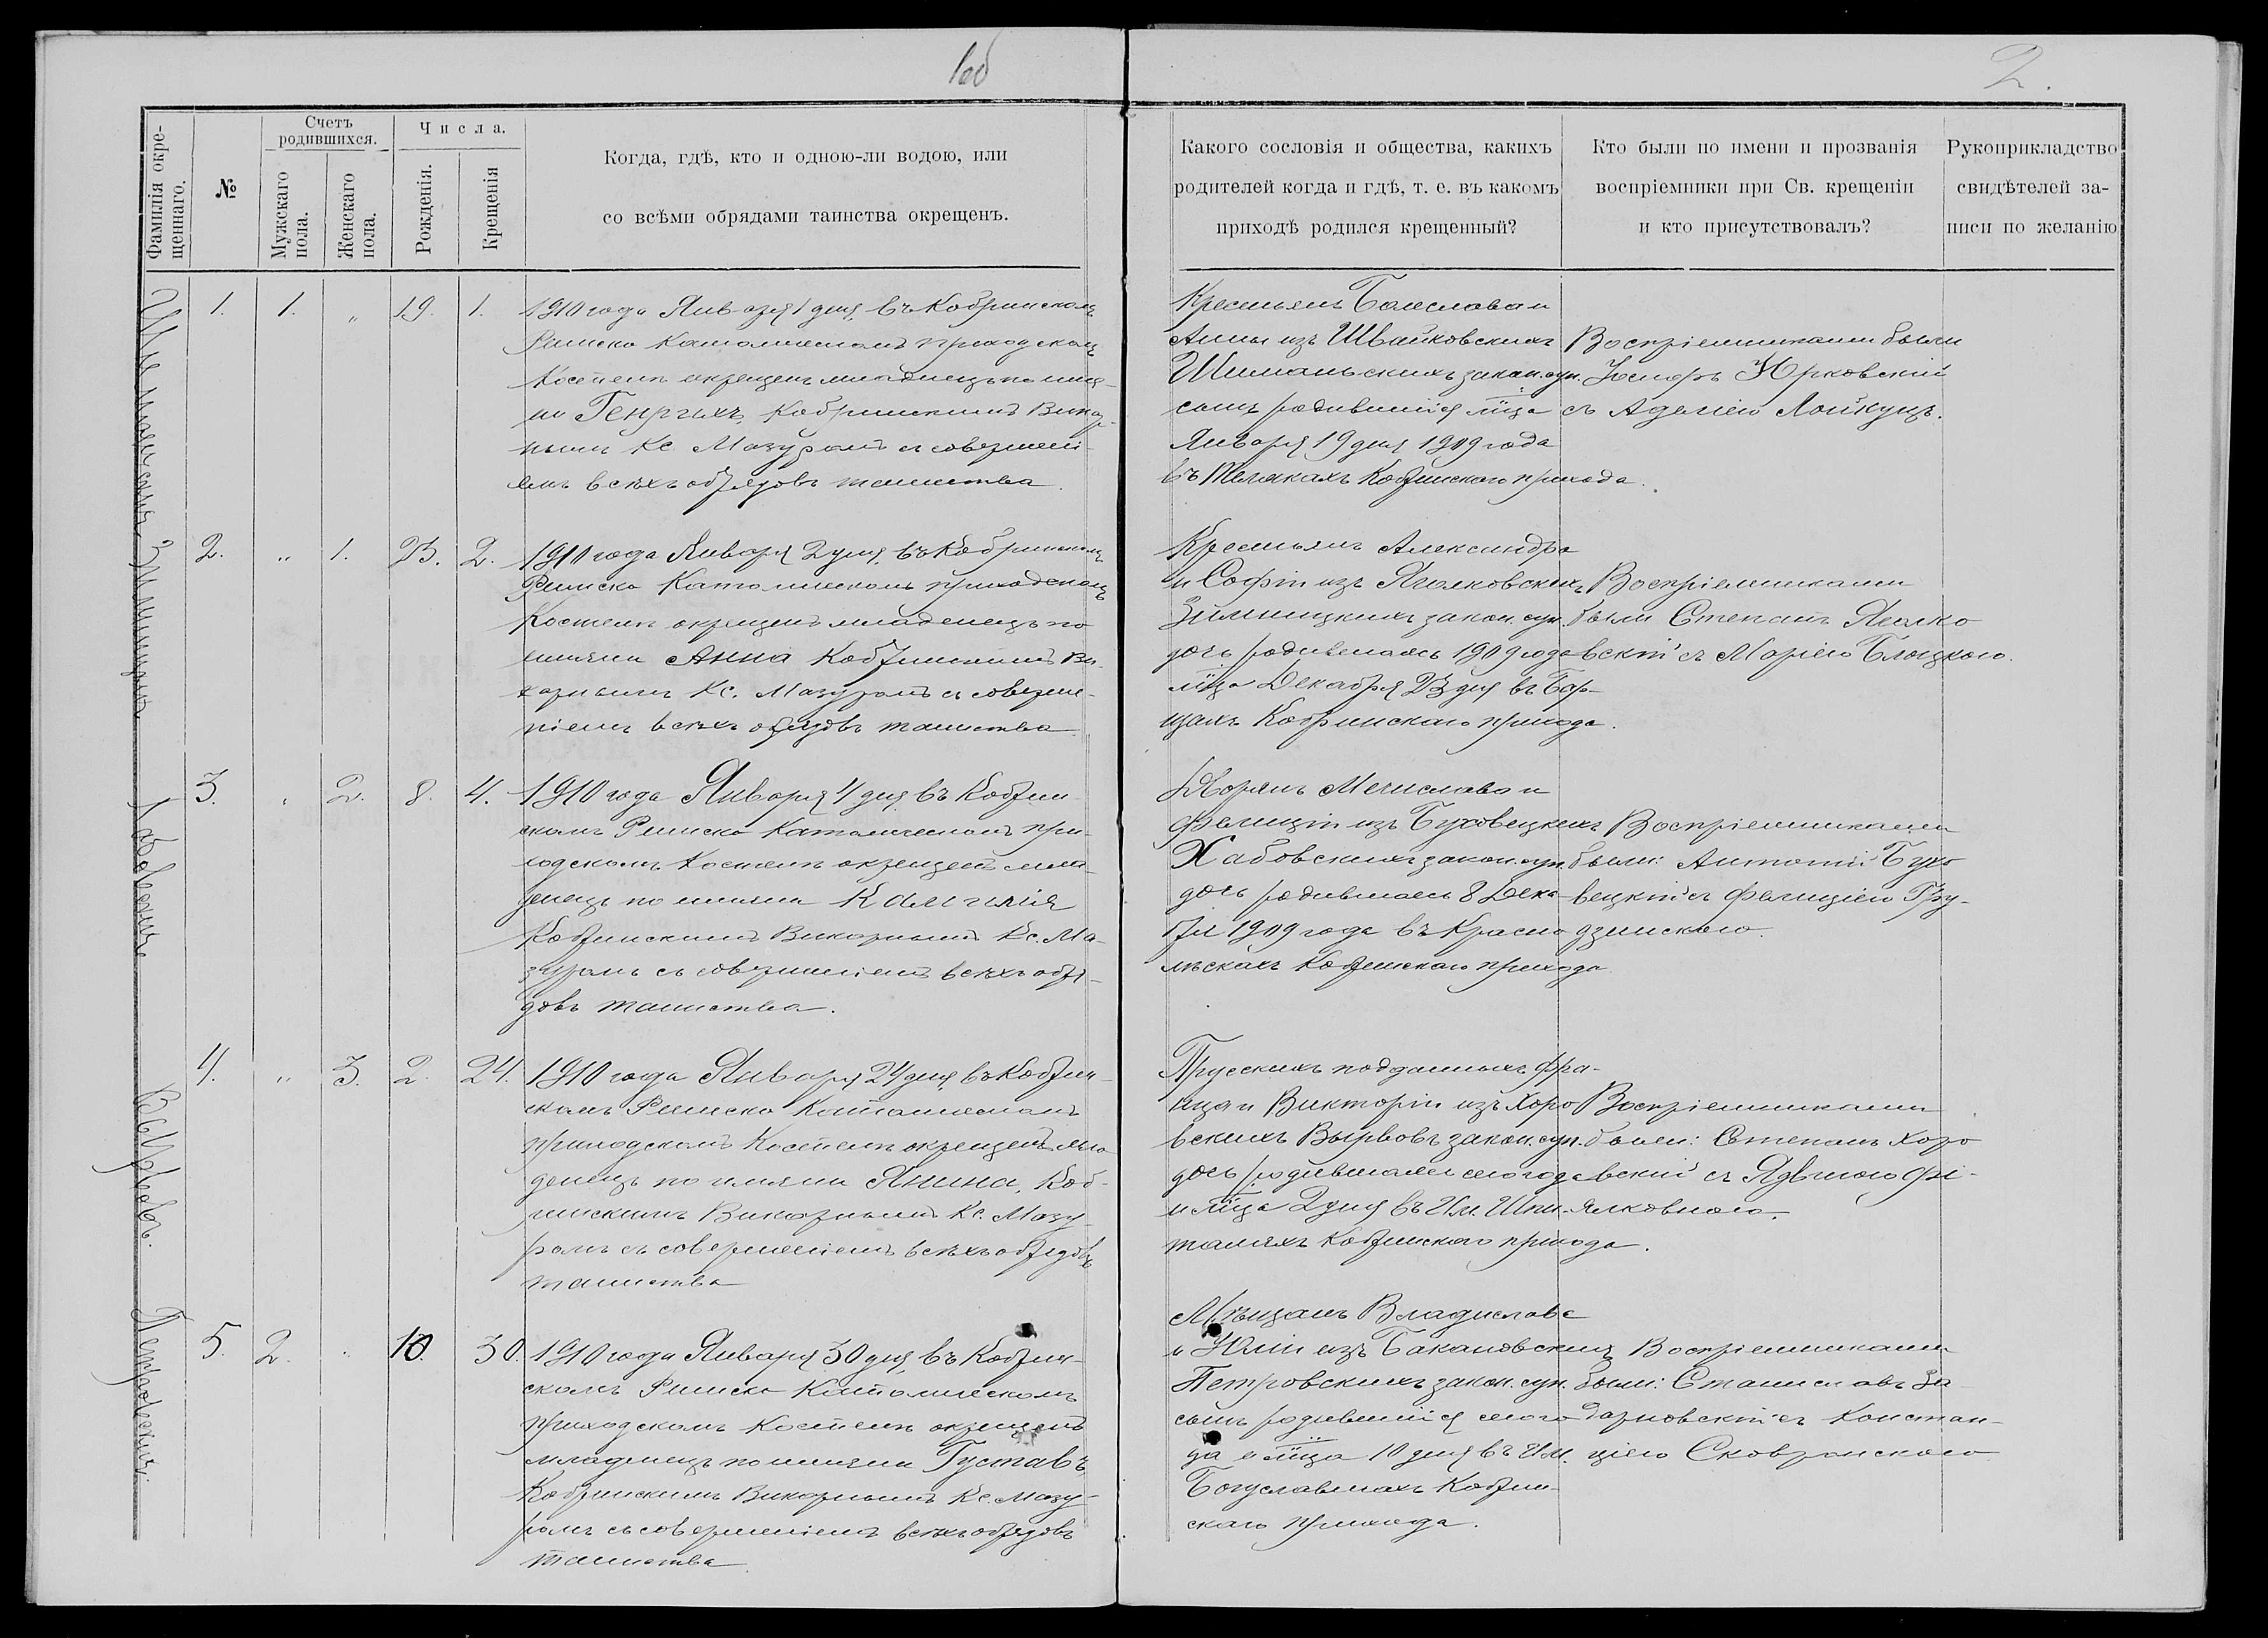 1об
2.
Фамилія окре-
щеннаго.
№
Счетъ
родившихся.
Мужскаго
пола.
Женскаго
пола.
Числа.
Рожденія.
Крещенія
Когда, гдѣ, кто и одною-ли водою, или
со всѣми обрядами таинства окрещенъ.
Какого сословія и общества, какихъ
родителей когда и гдѣ, т. е. въ какомъ
приходѣ родился крещенный?
Кто были по имени и прозванія
воспріемники при Св. крещеніи
и кто присутствовалъ?
Рукоприкладство
свидѣтелей за-
писи по желанію
1. 1. „ 19. 1.
1910 года Января 1 дня въ Кобринскомъ
Римско Католическомъ приходскомъ
Костелѣ окрещенъ младенецъ по име-
ни Генрихъ, Кобринскимъ Викар-
нымъ Кс. Мазуромъ съ совершені-
емъ всѣхъ обрядовъ таинства.
Крестьянъ Болеслава и
Анны изъ Швайковскихъ
Шиманьскихъ закон. суп.
сынъ родившійся мца
Января 19 дня 1909 года
въ Кобринскаго прихода.
Воспріемниками были
Юрковскій
съ Аделіею
2. „ 1. 23. 2.
Зимницкихъ
1910 года Января 2 дня, въ Кобринскомъ
Римско Католическомъ приходскомъ
Костелѣ окрещенъ младенецъ по
имени Анна Кобринскимъ Ви-
карнымъ Кс. Мазуромъ съ соверше-
ніемъ всѣхъ обрядовъ таинства
Крестьянъ Александра
и Софіи изъ Яголковскихъ
Зимницкихъ закон. суп.
дочь родившаяся 1909 года
мца Декабря 23 дня въ Бор-
щахъ Кобринскаго прихода.
Воспріемниками
были Степанъ
вскій съ Маріею Блоцкою.
3. „ 2. 8. 4.
Хабовскихъ
1910 года Января 4 дня, въ Кобрин-
скомъ Римско Католическомъ при-
ходскомъ Костелѣ окрещенъ мла-
денецъ по имени Камилія
Кобринскимъ Викарнымъ Кс. Ма-
зуромъ съ совершеніемъ всѣхъ обря-
довъ таинства.
Дворянъ Мечислава и
Фелиціи изъ Буховецкихъ
Хабовскихъ закон. суп.
дочь родившаяся 8 Дека-
бря 1909 года въ Красно
лѣскахъ Кобринскаго прихода
Воспріемниками
были: Антоній Бухо
вецкій съ Фелиціею Гру-
дзинскою.
4. „ 3. 2. 24.
Вырвовъ.
1910 года Января 24 дня, въ Кобрин-
скомъ Римско Католическомъ
приходскомъ Костелѣ окрещенъ мла
денецъ по имени Янина, Коб-
ринскимъ Викарнымъ Кс. Мазу-
ромъ съ совершеніемъ всѣхъ обрядовъ
таинства
Прусскихъ подданныхъ Фра-
нца и Викторіи изъ Хоро
вскихъ Вырвовъ закон. суп.
дочь родившаяся сего года
и мца 2 дня въ Им. Шпи-
таляхъ Кобринскаго прихода.
Воспріемниками
были: Степанъ Хоро
вскій съ Ядвигою Фі-
ялковною.
5. 2. „ 10. 30.
Петровскихъ
1910 года Января 30 дня, въ Кобрин-
скомъ Римско Католическомъ
приходскомъ Костелѣ окрещенъ
младенецъ по имени Густавъ,
Кобринскимъ Викарнымъ Кс. Мазу-
ромъ съ совершеніемъ всѣхъ обрядовъ
таинства
Мѣщанъ Владислава
и Юліи изъ Бакановскихъ
Петровскихъ закон. суп.
сынъ родившійся сего го
да и мца 10 дня въ Им.
Богуславшахъ Кобрин-
скаго прихода.
Воспріемниками
были: Станиславъ За
дарновскій съ Констан-
ціею Сковронскою